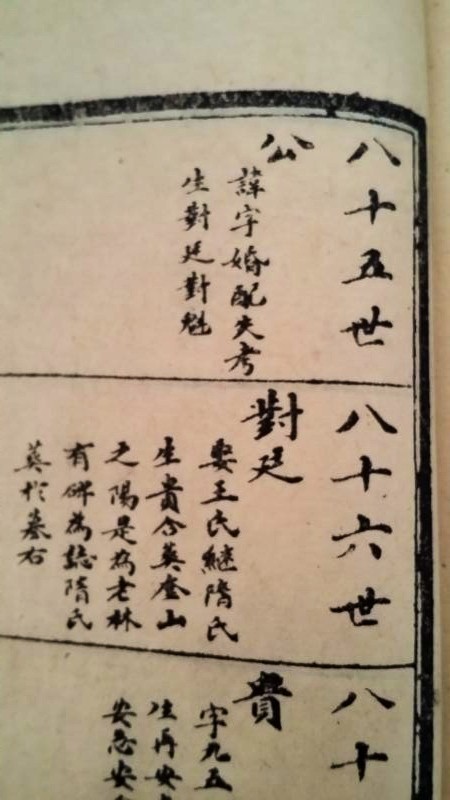 八十五世
公
諱字婚配失考
生對廷對魁
八十六世
對廷
娶王氏継隋氏
生貴合葬奎山
之陽是為老林
有碑為誌隋氏
葬於墓右
八十
貴
字九五
生再安
安忍安